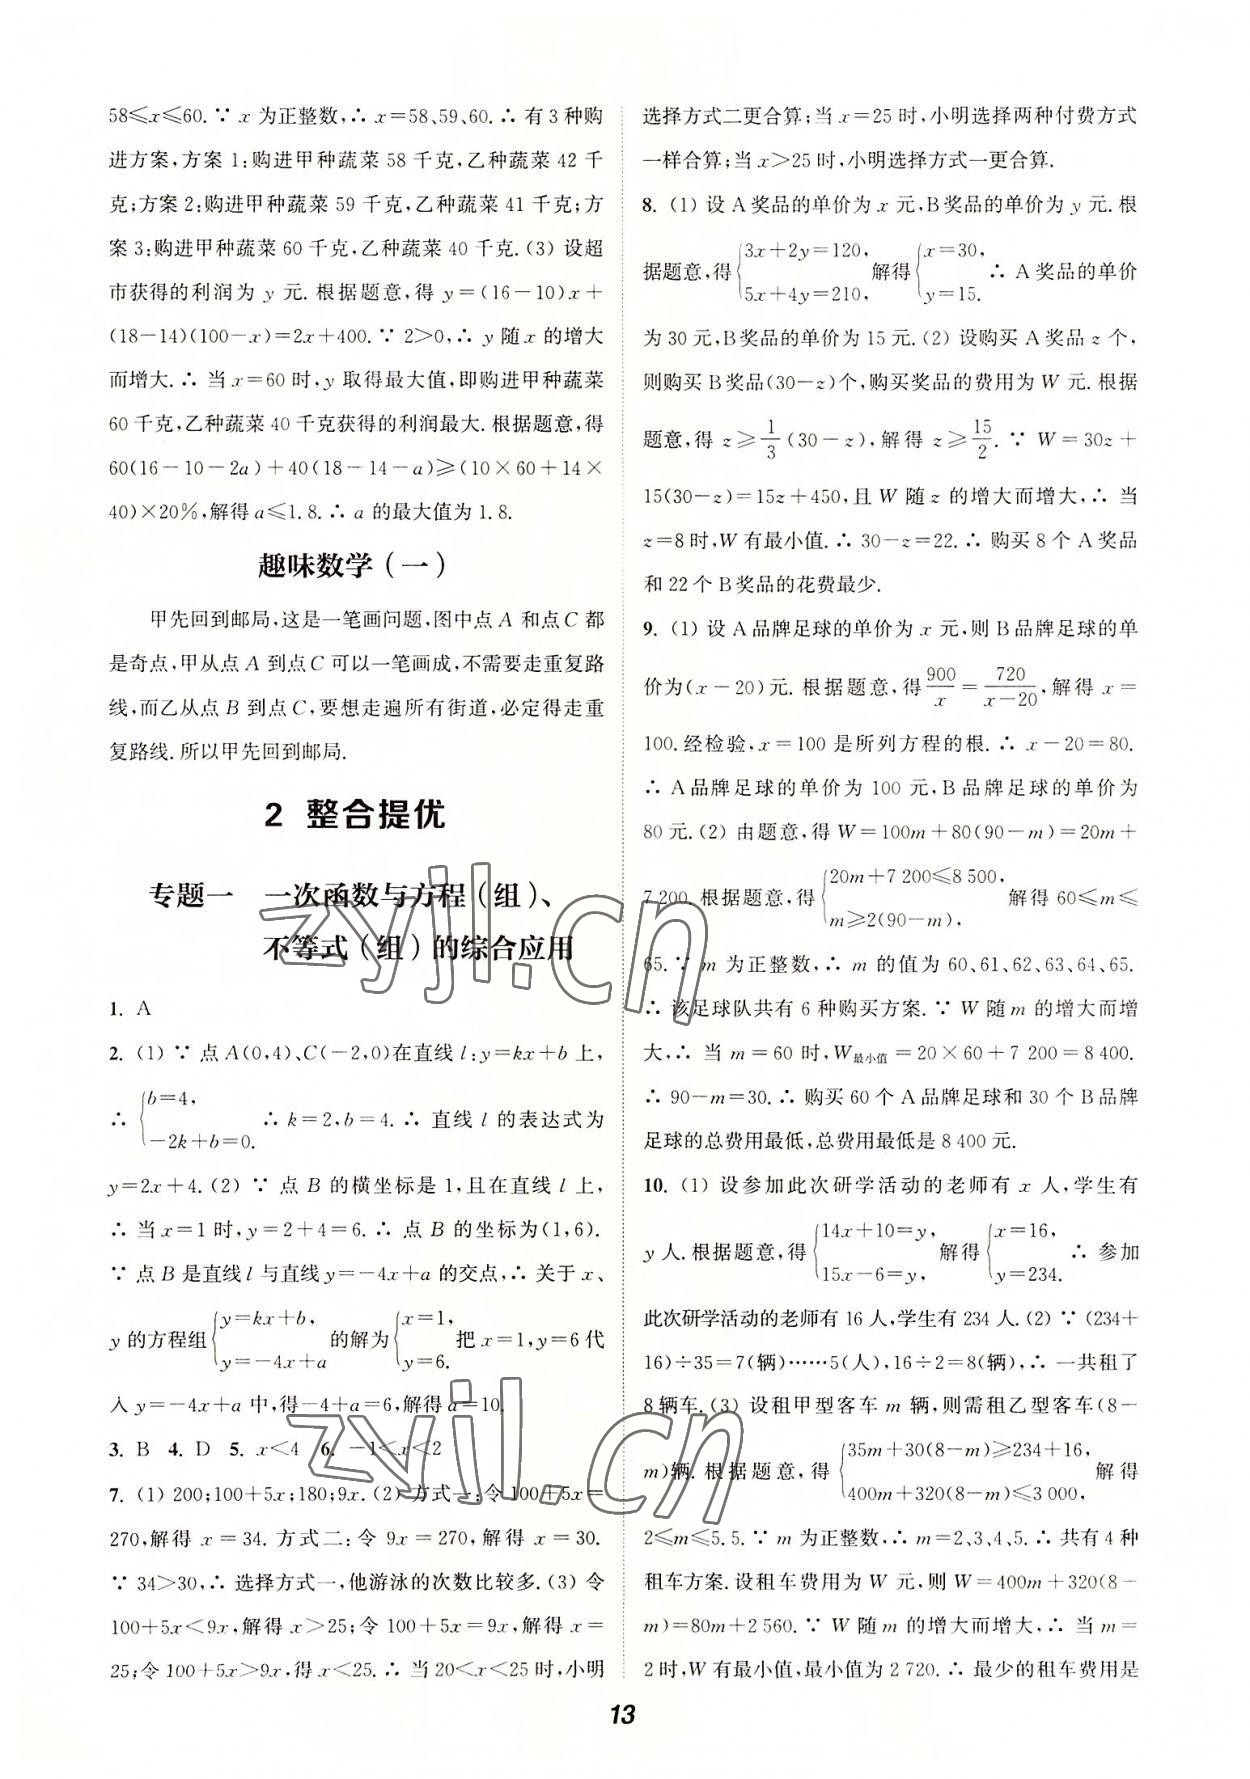 58≤x≤60. ∵ x 为正整数,∴ x=58、59、60. ∴ 有 3 种购
进方案,方案 1:购进甲种蔬菜 58 千克,乙种蔬菜 42 千
克;方案 2:购进甲种蔬菜 59 千克,乙种蔬菜 41 千克;方
案 3:购进甲种蔬菜 60 千克,乙种蔬菜 40 千克.(3) 设超
市获得的利润为 y 元. 根据题意,得 y=(16-10)x+
(18-14)(100-x)=2x+400. ∵ 2>0,∴ y 随 x 的增大
而增大. ∴ 当 x=60 时,y 取得最大值,即购进甲种蔬菜
60 千克,乙种蔬菜 40 千克获得的利润最大. 根据题意,得
60(16-10-2a)+40(18-14-a)≥(10×60+14×
40)×20%,解得 a≤1.8. ∴ a 的最大值为 1.8.
趣味数学(一)
甲先回到邮局,这是一笔画问题,图中点 A 和点 C 都
是奇点,甲从点 A 到点 C 可以一笔画成,不需要走重复路
线,而乙从点 B 到点 C,要想走遍所有街道,必定得走重
复路线. 所以甲先回到邮局.
2 整合提优
专题一 一次函数与方程(组)、
不等式(组)的综合应用
1. A
2. (1) ∵ 点 A(0,4)、C(-2,0)在直线 l:y=kx+b 上,
∴ {b=4, -2k+b=0. ∴ k=2,b=4. ∴ 直线 l 的表达式为
y=2x+4.(2) ∵ 点 B 的横坐标是 1,且在直线 l 上,
∴ 当 x=1 时,y=2+4=6. ∴ 点 B 的坐标为(1,6).
∵ 点 B 是直线 l 与直线 y=-4x+a 的交点,∴ 关于 x、
y 的方程组 {y=kx+b, y=-4x+a 的解为 {x=1, y=6. 把 x=1,y=6 代
入 y=-4x+a 中,得-4+a=6,解得 a=10.
3. B 4. D 5. x<4 6. -1<x<2
7. (1) 200;100+5x;180;9x.(2) 方式一:令 100+5x=
270,解得 x=34. 方式二:令 9x=270,解得 x=30.
∵ 34>30,∴ 选择方式一,他游泳的次数比较多.(3) 令
100+5x<9x,解得 x>25;令 100+5x=9x,解得 x=
25;令 100+5x>9x,得 x<25. ∴ 当 20<x<25 时,小明
选择方式二更合算;当 x=25 时,小明选择两种付费方式
一样合算;当 x>25 时,小明选择方式一更合算.
8. (1) 设 A 奖品的单价为 x 元,B 奖品的单价为 y 元. 根
据题意,得 {3x+2y=120, 5x+4y=210, 解得 {x=30, y=15. ∴ A 奖品的单价
为 30 元,B 奖品的单价为 15 元.(2) 设购买 A 奖品 z 个,
则购买 B 奖品(30-z)个,购买奖品的费用为 W 元. 根据
题意,得 z≥1/3(30-z),解得 z≥15/2. ∵ W=30z+
15(30-z)=15z+450,且 W 随 z 的增大而增大,∴ 当
z=8 时,W 有最小值. ∴ 30-z=22. ∴ 购买 8 个 A 奖品
和 22 个 B 奖品的花费最少.
9. (1) 设 A 品牌足球的单价为 x 元,则 B 品牌足球的单
价为(x-20)元. 根据题意,得 900/x=720/(x-20),解得 x=
100. 经检验,x=100 是所列方程的根. ∴ x-20=80.
∴ A 品牌足球的单价为 100 元,B 品牌足球的单价为
80 元.(2) 由题意,得 W=100m+80(90-m)=20m+
7 200. 根据题意,得 {20m+7 200≤8 500, m≥2(90-m), 解得 60≤m≤
65. ∵ m 为正整数,∴ m 的值为 60、61、62、63、64、65.
∴ 该足球队共有 6 种购买方案. ∵ W 随 m 的增大而增
大,∴ 当 m=60 时,W最小值=20×60+7 200=8 400.
∴ 90-m=30. ∴ 购买 60 个 A 品牌足球和 30 个 B 品牌
足球的总费用最低,总费用最低是 8 400 元.
10. (1) 设参加此次研学活动的老师有 x 人,学生有
y 人. 根据题意,得 {14x+10=y, 15x-6=y, 解得 {x=16, y=234. ∴ 参加
此次研学活动的老师有 16 人,学生有 234 人.(2) ∵ (234+
16)÷35=7(辆)……5(人),16÷2=8(辆),∴ 一共租了
8 辆车.(3) 设租甲型客车 m 辆,则需租乙型客车(8-
m)辆. 根据题意,得 {35m+30(8-m)≥234+16, 400m+320(8-m)≤3 000, 解得
2≤m≤5.5. ∵ m 为正整数,∴ m=2、3、4、5. ∴ 共有 4 种
租车方案. 设租车费用为 W 元,则 W=400m+320(8-
m)=80m+2 560. ∵ W 随 m 的增大而增大,∴ 当 m=
2 时,W 有最小值,最小值为 2 720. ∴ 最少的租车费用是
13
zyjl.cn
zyjl.cn